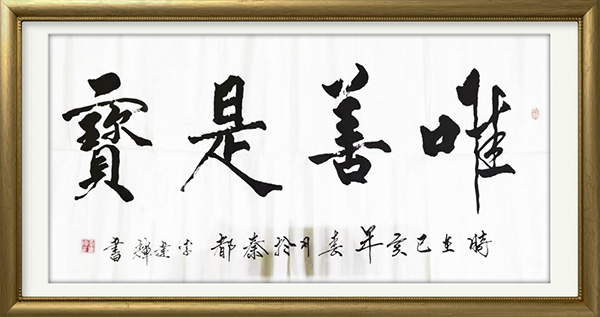 唯善是寶
時在己亥年春月於秦都李建輝書